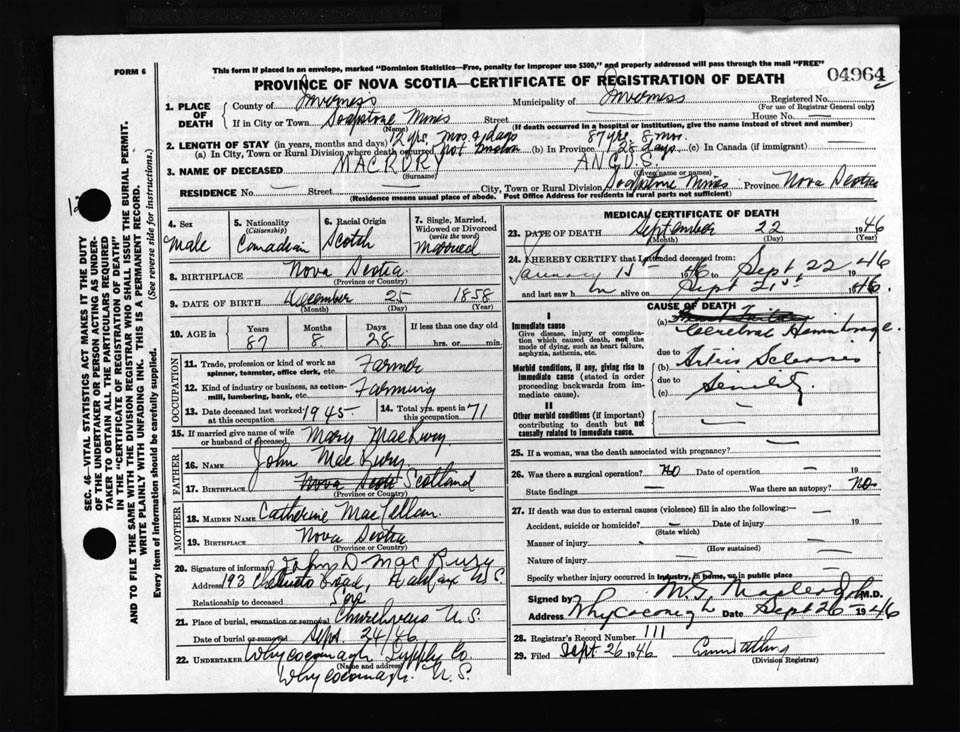 FORM 6
This form if placed in an envelope, marked "Dominion Statistics—Free, penalty for improper use $300," and properly addressed will pass through the mail "FREE"
PROVINCE OF NOVA SCOTIA—CERTIFICATE OF REGISTRATION OF DEATH
04964
1. PLACE OF DEATH
County of Inverness Municipality of Inverness Registered No.
(For use of Registrar General only)
If in City or Town Soapstone Mines Street — House No. —
(Name) (If death occurred in a hospital or institution, give the name instead of street and number)
2. LENGTH OF STAY (in years, months and days) 12 yrs. mos. days 87 yrs. 8 mos.
(a) In City, Town or Rural Division where death occurred not known (b) In Province 28 days (c) In Canada (if immigrant) —
3. NAME OF DECEASED MACRURY ANGUS
(Surname) (Given name or names)
RESIDENCE No. — Street — City, Town or Rural Division Soapstone Mines Province Nova Scotia
(Residence means usual place of abode. Post Office Address for residents in rural parts not sufficient)
SEC. 46—VITAL STATISTICS ACT MAKES IT THE DUTY
OF THE UNDERTAKER OR PERSON ACTING AS UNDER-
TAKER TO OBTAIN ALL THE PARTICULARS REQUIRED
IN THE "CERTIFICATE OF REGISTRATION OF DEATH"
AND TO FILE THE SAME WITH THE DIVISION REGISTRAR WHO SHALL ISSUE THE BURIAL PERMIT.
WRITE PLAINLY WITH UNFADING INK. THIS IS A PERMANENT RECORD.
Every item of information should be carefully supplied. (See reverse side for instructions.)
4. Sex
Male
5. Nationality
(Citizenship)
Canadian
6. Racial Origin
Scotch
7. Single, Married,
Widowed or Divorced
(write the word)
Married
8. BIRTHPLACE Nova Scotia
(Province or Country)
9. DATE OF BIRTH December 25 1858
(Month) (Day) (Year)
10. AGE in
Years Months Days If less than one day old
87 8 28 hrs. or min.
OCCUPATION
11. Trade, profession or kind of work as
spinner, teamster, office clerk, etc. Farmer
12. Kind of industry or business, as cotton-
mill, lumbering, bank, etc. Farming
13. Date deceased last worked
at this occupation 1945
14. Total yrs. spent in
this occupation 71
15. If married give name of wife
or husband of deceased Mary MacRury
FATHER
16. NAME John MacRury
17. BIRTHPLACE Nova Scotia Scotland
(Province or Country)
MOTHER
18. MAIDEN NAME Catherine MacLellan
19. BIRTHPLACE Nova Scotia
(Province or Country)
20. Signature of informant John D MacRury
Address 193 Chebucto Road, Halifax N.S.
Relationship to deceased Son
21. Place of burial, cremation or removal Churchview N.S.
Date of burial or removal Sept. 24/46
22. UNDERTAKER Whycocomagh Supply Co
(Name and address)
Whycocomagh. N.S.
MEDICAL CERTIFICATE OF DEATH
23. DATE OF DEATH September 22 1946
(Month) (Day) (Year)
24. I HEREBY CERTIFY that I attended deceased from:
January 1st 1946 to Sept 22 1946
and last saw him alive on Sept 21st 1946.
I
Immediate cause
Give disease, injury or complica-
tion which caused death, not the
mode of dying, such as heart failure,
asphyxia, asthenia, etc.
Morbid conditions, if any, giving rise to
immediate cause (stated in order
proceeding backwards from im-
mediate cause).
II
Other morbid conditions (if important)
contributing to death but not
causally related to immediate cause.
CAUSE OF DEATH
(a) Cerebral Hemorrhage.
due to
(b) Arterio Sclerosis
due to
(c) Senility.
25. If a woman, was the death associated with pregnancy? —
26. Was there a surgical operation? No Date of operation — 19
State findings — Was there an autopsy? No.
27. If death was due to external causes (violence) fill in also the following: —
Accident, suicide or homicide? — Date of injury — 19
(State which)
Manner of injury —
(How sustained)
Nature of injury —
Specify whether injury occurred in industry, in home, or in public place
Signed by M.G. M.D.
Address Whycocomagh Date Sept 26 1946
28. Registrar's Record Number 111
29. Filed Sept 26 1946
(Division Registrar)